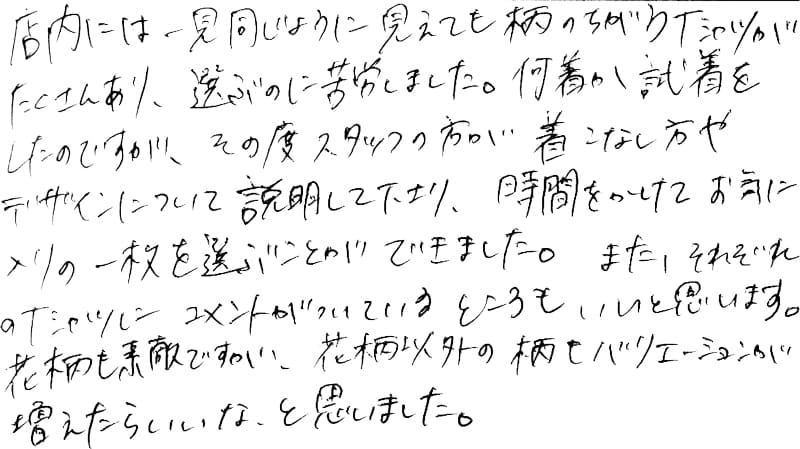 店内には一見同じように見えても柄のちがうTシャツが
たくさんあり、選ぶのに苦労しました。何着か試着を
したのですが、その度スタッフの方が着こなし方や
デザインについて説明して下さり、時間をかけてお気に
入りの一枚を選ぶことができました。また、それぞれ
のTシャツにコメントがついているところもいいと思います。
花柄も素敵ですが、花柄以外の柄もバリエーションが
増えたらいいな、と思いました。